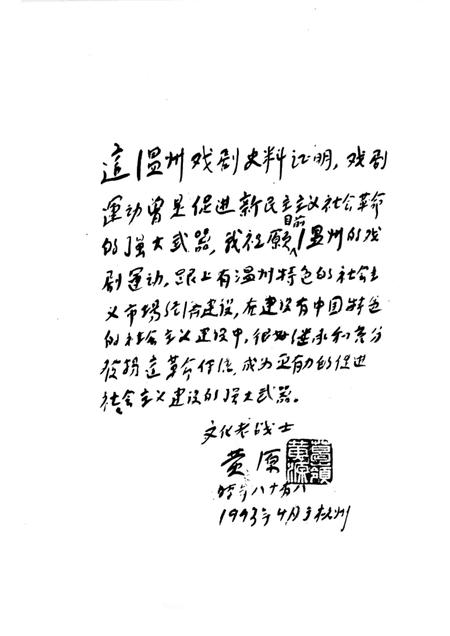 這温州戏剧史料证明，戏剧
運动曾是促進新民主主义社会革命
的強大武器，我祝願目前温州的戏
剧運动，跟上有温州特色的社会主
义市場经济建设，在建设有中国特色
的社会主义建设中，很好继承和充分
發揚這革命传统，成为更有力的促進
社会主义建设的強大武器。
文化老战士
黄源
時年八十有八
1993年4月于杭州